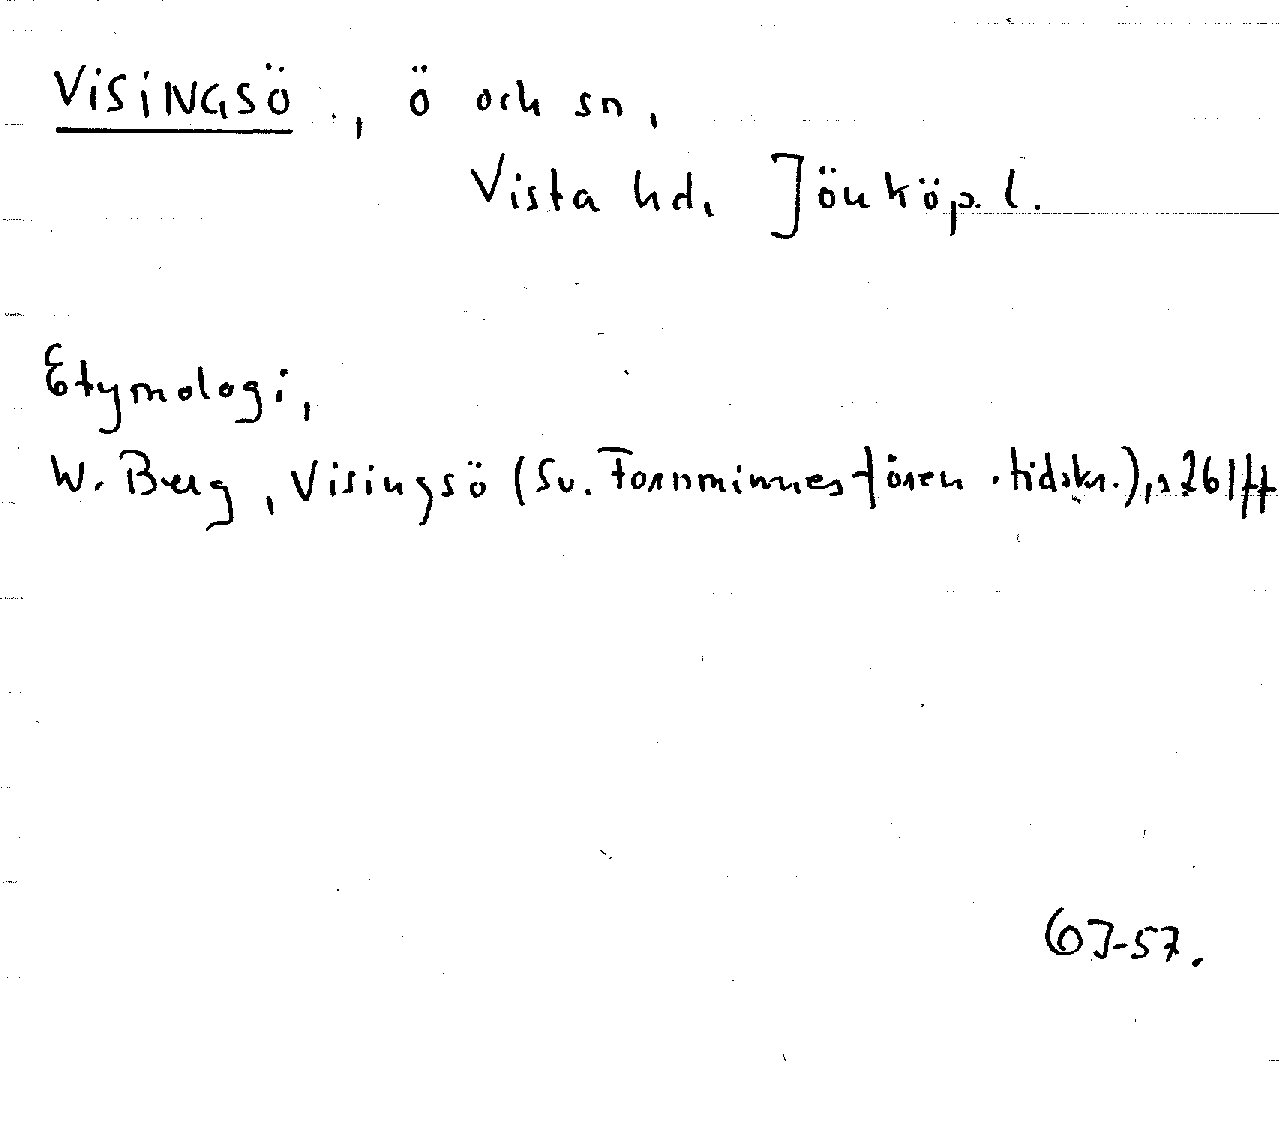 VISINGSÖ, ö och sn,
Vista hd, Jönköp. l.
Etymologi,
W. Berg, Visingsö (Sv. Fornminnesfören. tidskr.), s 261 ff
GJ-57.